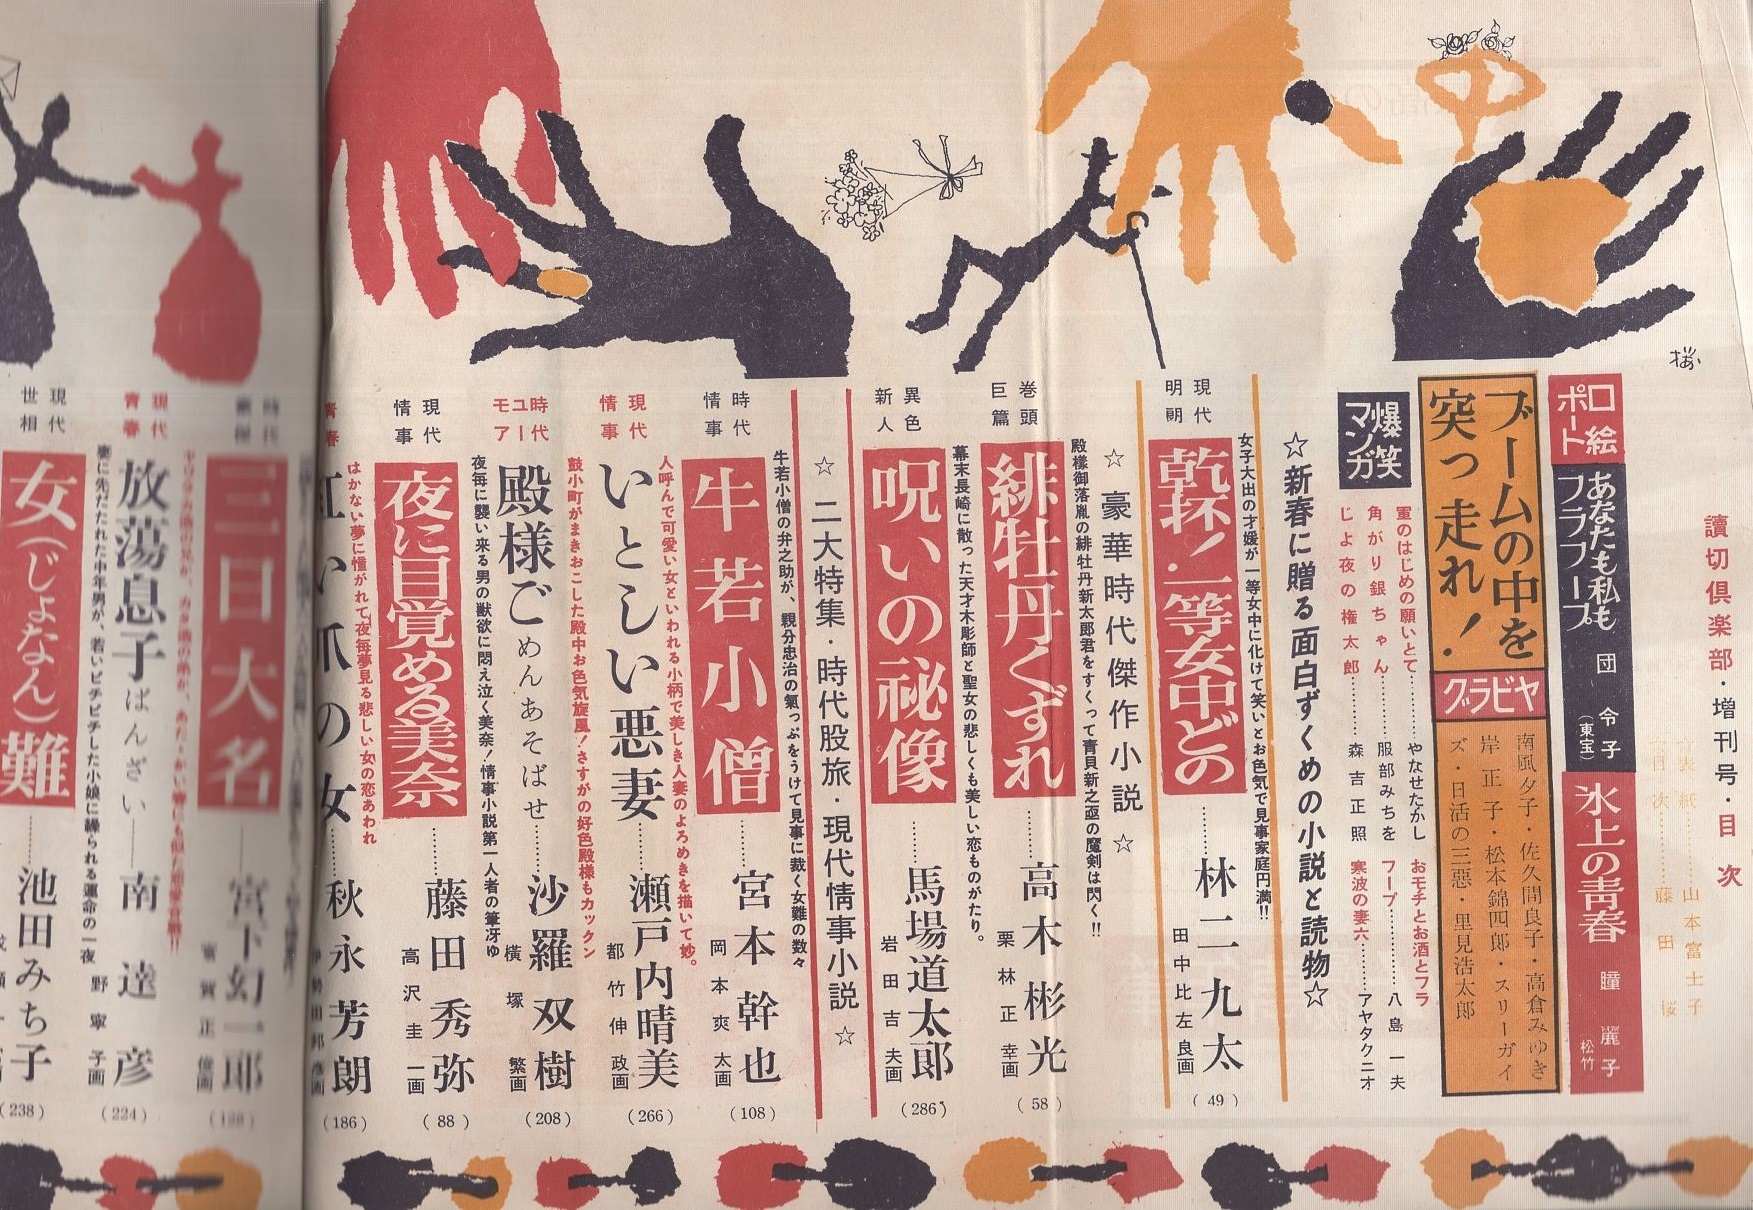 讀切倶楽部・増刊号・目次
☆表紙……山本富士子
☆目次……藤田桜
口絵
ポート
あなたも私も
フラフープ
団令子
(東宝)
氷上の青春
瞳麗子
(松竹)
ブームの中を
突っ走れ!
グラビヤ
南風夕子・佐久間良子・高倉みゆき
岸正子・松本錦四郎・スリーガイ
ズ・日活の三悪・里見浩太郎
爆笑
マンガ
軍のはじめの願いとて……やなせたかし
角がり銀ちゃん……服部みちを
じよ夜の権太郎……森吉正照
おモチとお酒とフラ
フープ……八島一夫
寒波の妻六……アヤタクニオ
☆新春に贈る面白ずくめの小説と読物☆
女子大出の才媛が一等女中に化けて笑いとお色気で見事家庭円満!!
現代
明朗
乾杯!一等女中どの……林二九太
田中比左良画
(49)
☆豪華時代傑作小説☆
殿様御落胤の緋牡丹新太郎君をすくって青貝新之亟の魔剣は閃く!!
巻頭
巨篇
緋牡丹くずれ……高木彬光
栗林正幸画
(58)
幕末長崎に散った天才木彫師と聖女の悲しくも美しい恋ものがたり。
異色
新人
呪いの祕像……馬場道太郎
岩田吉夫画
(286)
☆二大特集・時代股旅・現代情事小説☆
牛若小僧の弁之助が、親分忠治の氣っぷをうけて見事に裁く女難の数々
時代
情事
牛若小僧……宮本幹也
岡本爽太画
(108)
人呼んで可愛い女といわれる小柄で美しき人妻のよろめきを描いて妙。
現代
情事
いとしい悪妻……瀬戸内晴美
都竹伸政画
(266)
鼓小町がまきおこした殿中お色気旋風!さすがの好色殿様もカックン
時代
ユーモア
殿様ごめんあそばせ……沙羅双樹
横塚繁画
(208)
夜毎に襲い来る男の獣欲に悶え泣く美奈!情事小説第一人者の筆冴ゆ
現代
情事
夜に目覚める美奈……藤田秀弥
高沢圭一画
(88)
はかない夢に憧がれて夜毎夢見る悲しい女の恋あわれ
青春
紅い爪の女……秋永芳朗
伊勢田邦彦画
(186)
時代
三日大名……宮下幻一郎
(198)
現代
青春
放蕩息子ばんざい……南達彦
野寧子画
(224)
妻に先だたれた中年男が、若いピチピチした小娘に繰られる運命の一夜
現代
世相
女(じょなん)難……池田みち子
(238)
桜